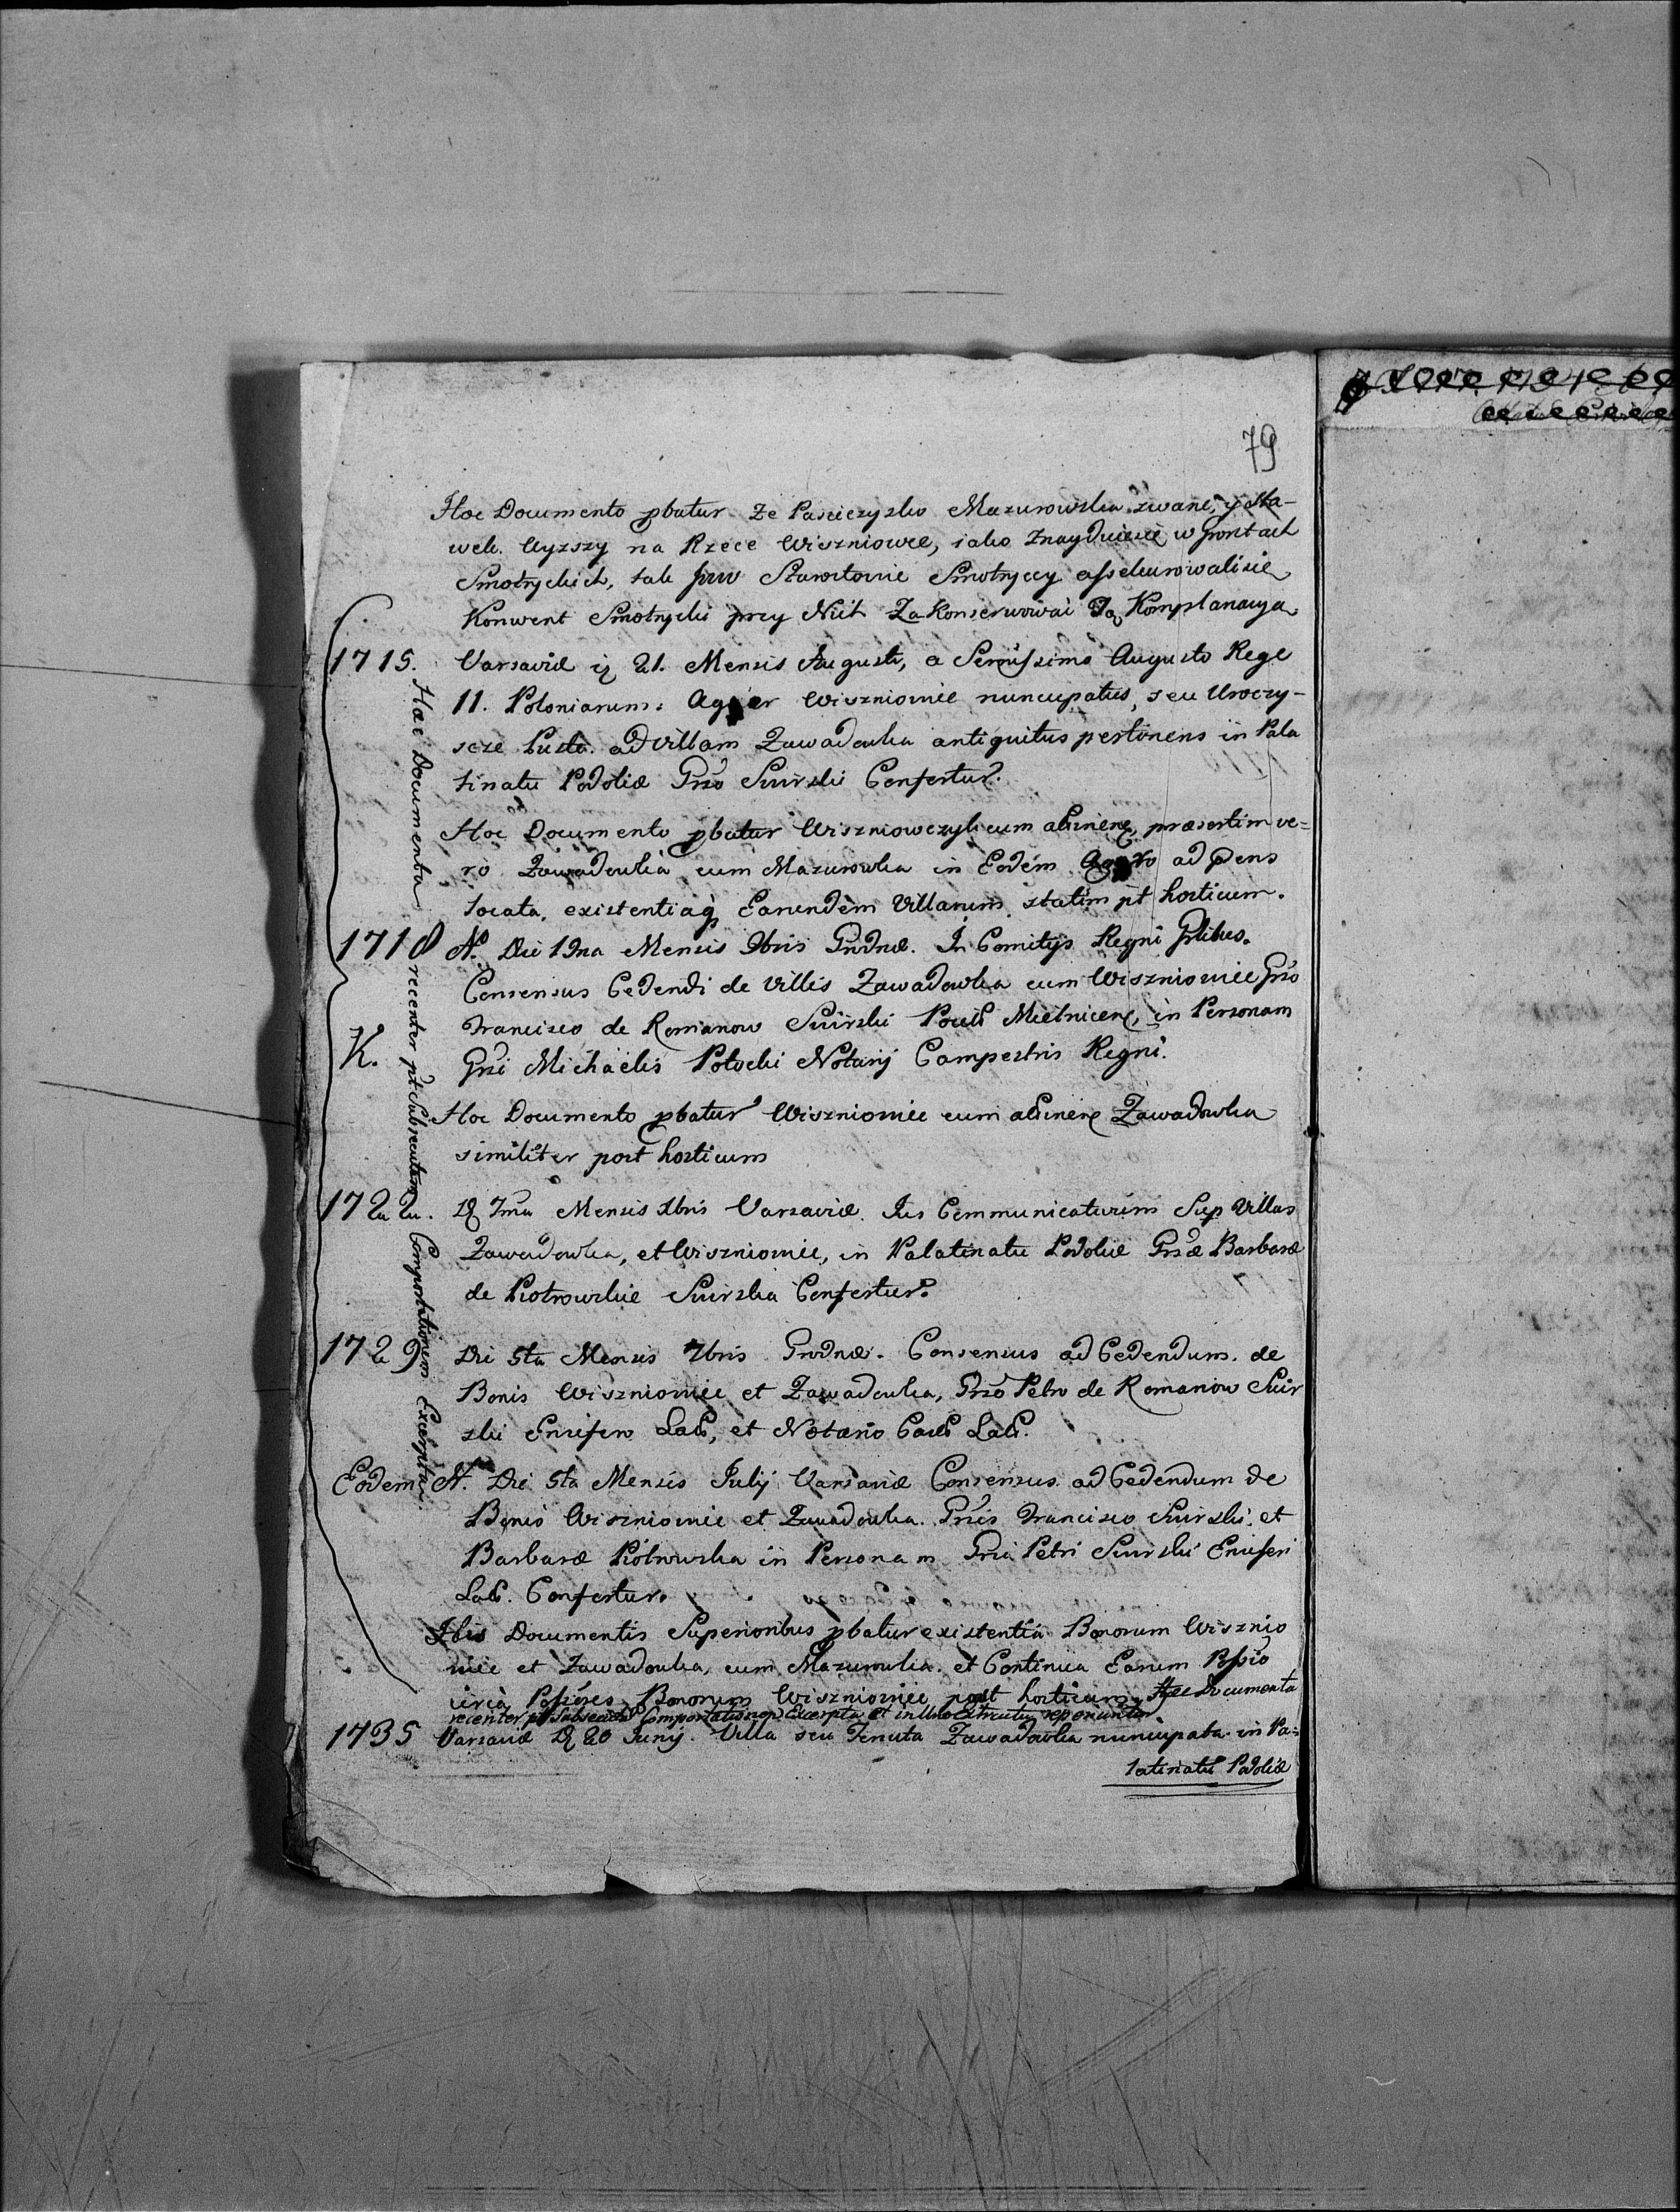 79
Hoc Documento pbatur że Pasieczysko Mazurowska zwane, y Sta-
wek Wyzszy na Rzece Wiszniowce, iako znayduiesię w Gruntach
Smotryckich, tak Jmo Starostowie Smotryccy assekurowali się
Konwent Smotrycki przy Nich Zakonserwować Tą Komplanacyą.
1715. Varsaviæ 21. Mensis Augusti, a Serenissimo Augusto Rege
11. Poloniarum. Agger Wiszniowie nuncupatus, seu Uroczy-
scze Puste ad villam Zawadowka antiquitus pertinens in Pala
tinatu Podoliæ Gnso Swirski Confertur.
Hoc Documento pbatur Wiszniowczyk cum attinen, præsertim ve=
ro Zawadowka cum Mazurowka in Eodem Aggero ad pens
locata, existentiaq Earundem Villarum statim pt hosticum.
1718 A. Die 19na Mensis 9bris Grodnæ. In Comitys Regni Gnlibus.
Consensus Cedendi de Villis Zawadowka cum Wiszniowiec Gnso
Francisco de Romanow Swirski Mielnicen, in Personam
K. Gnsi Michaëlis Potocki Notarij Campestris Regni.
Hoc Documento pbatur Wiszniowiec cum attinen Zawadowka
similiter post hosticum
1722. D 7ma Mensis Xbris Varsaviæ. Ius Communicaturum Sup Villas
Zawadowka, et Wiszniowiec, in Palatinatu Podoliæ Gnsæ Barbaræ
de Piotrowskie Swirska Confertur.
1729 Die 5ta Mensis 7bris Grodnæ. Consensus ad Cedendum de
Bonis Wiszniowiec et Zawadowka, Gnso Petro de Romanow Swir
ski Ensifero Lati, et Notario Lati.
Eodem A. Die 5ta Mensis Julij Varsaviæ Consensus ad Cedendum de
Bonis Wiszniowiec et Zawadowka. Gnsis Francisco Swirski et
Barbaræ Piotrowska in Personam Gnsi Petri Swirski Ensiferi
Lati. Confertur.
His Documentis Superioribus pbatur existentia Bonorum Wisznio
wiec et Zawadowka, cum Mazurowka. et Continua Earum Possio
circa Possores Bonorum Wiszniowiec post hosticum. Hæc Documenta
recenter pt Subsecutam Comportationem Excerpta et in reponuntur.
1735 Varsaviæ D 20 Junij. Villa seu Tenuta Zawadowka nuncupata in Pa=
latinatu Podoliæ
Hæc Documenta recenter pt Subsecutam Comportationem Excerpta